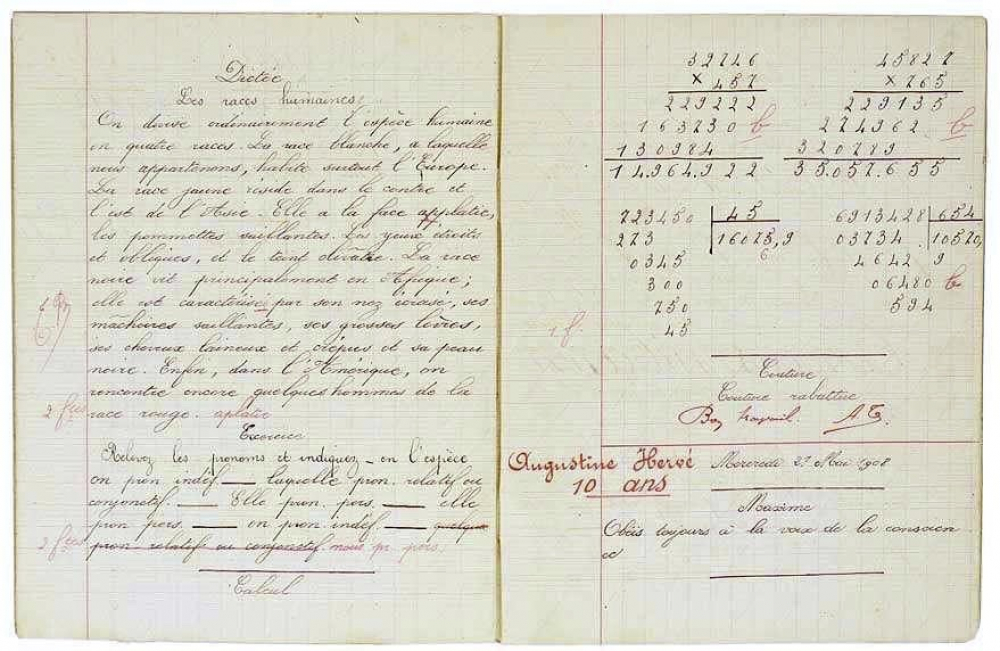 Dictée
Les races humaines
On divise ordinairement l'espèce humaine
en quatre races. La race blanche, à laquelle
nous appartenons, habite surtout l'Europe.
La race jaune réside dans le centre et
l'est de l'Asie. Elle a la face applatie,
les pommettes saillantes. Les yeux étroits
et obliques, et le teint olivâtre. La race
noire vit principalement en Afrique;
elle est caractérisée par son nez écrasé, ses
mâchoires saillantes, ses grosses lèvres,
ses cheveux laineux et crépus et sa peau
noire. Enfin, dans l'Amérique, on
rencontre encore quelques hommes de la
2 fois race rouge. aplatie
Exercice
Relevez les pronoms et indiquez - en l'espèce
on pron indéf. — laquelle pron. relatif ou
conjonctif. — Elle pron. pers. — elle
pron pers. — on pron indéf. — quelque
2 fois pron relatif ou conjonctif. nous pr. pers.
Calcul
32746
× 457
229222
163730 b
130984
14.964.922
45827
× 765
229135
274962 b
320789
35.057.655
723450 45
273 16075,9
6
0345
300
750
45
1 f.
6913428 654
03734 10570,
4642 9
06480 b
594
Couture
Couture rabattue
Bon travail.
Augustine Hervé
10 ans
Mercredi 27 Mai 1908
Maxime
Obéis toujours à la voix de la conscien
ce